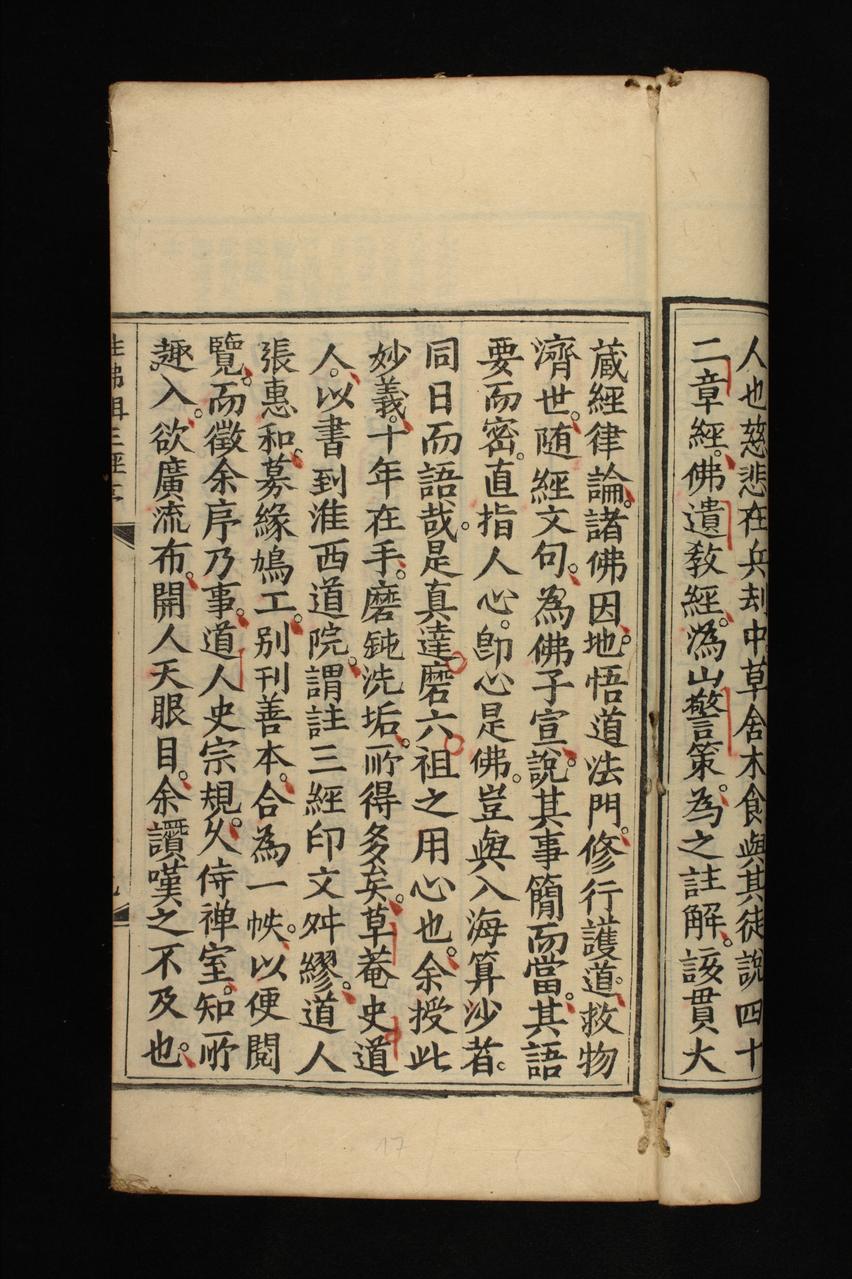 人也慈悲在兵刼中草舍木食與其徒說四十
二章經。佛遺教經。潙山警策。為之註解。該貫大
蔵經律論。諸佛因地。悟道法門。修行護道。救物
濟世。随經文句。為佛子宣說。其事簡而當。其語
要而密。直指人心。卽心是佛。豈與入海算沙者。
同日而語哉。是真達磨六祖之用心也。余授此
妙義。十年在手。磨鈍洗垢。所得多矣。草菴史道
人。以書到淮西道院。謂註三經印文舛繆。道人
張惠和。募緣鳩工。别刊善本。合為一帙。以便閱
覽。而徵余序乃事。道人史宗規。久侍禅室。知所
趣入。欲廣流布。開人天眼目。余讚嘆之不及也。
註佛祖三經序
九
17